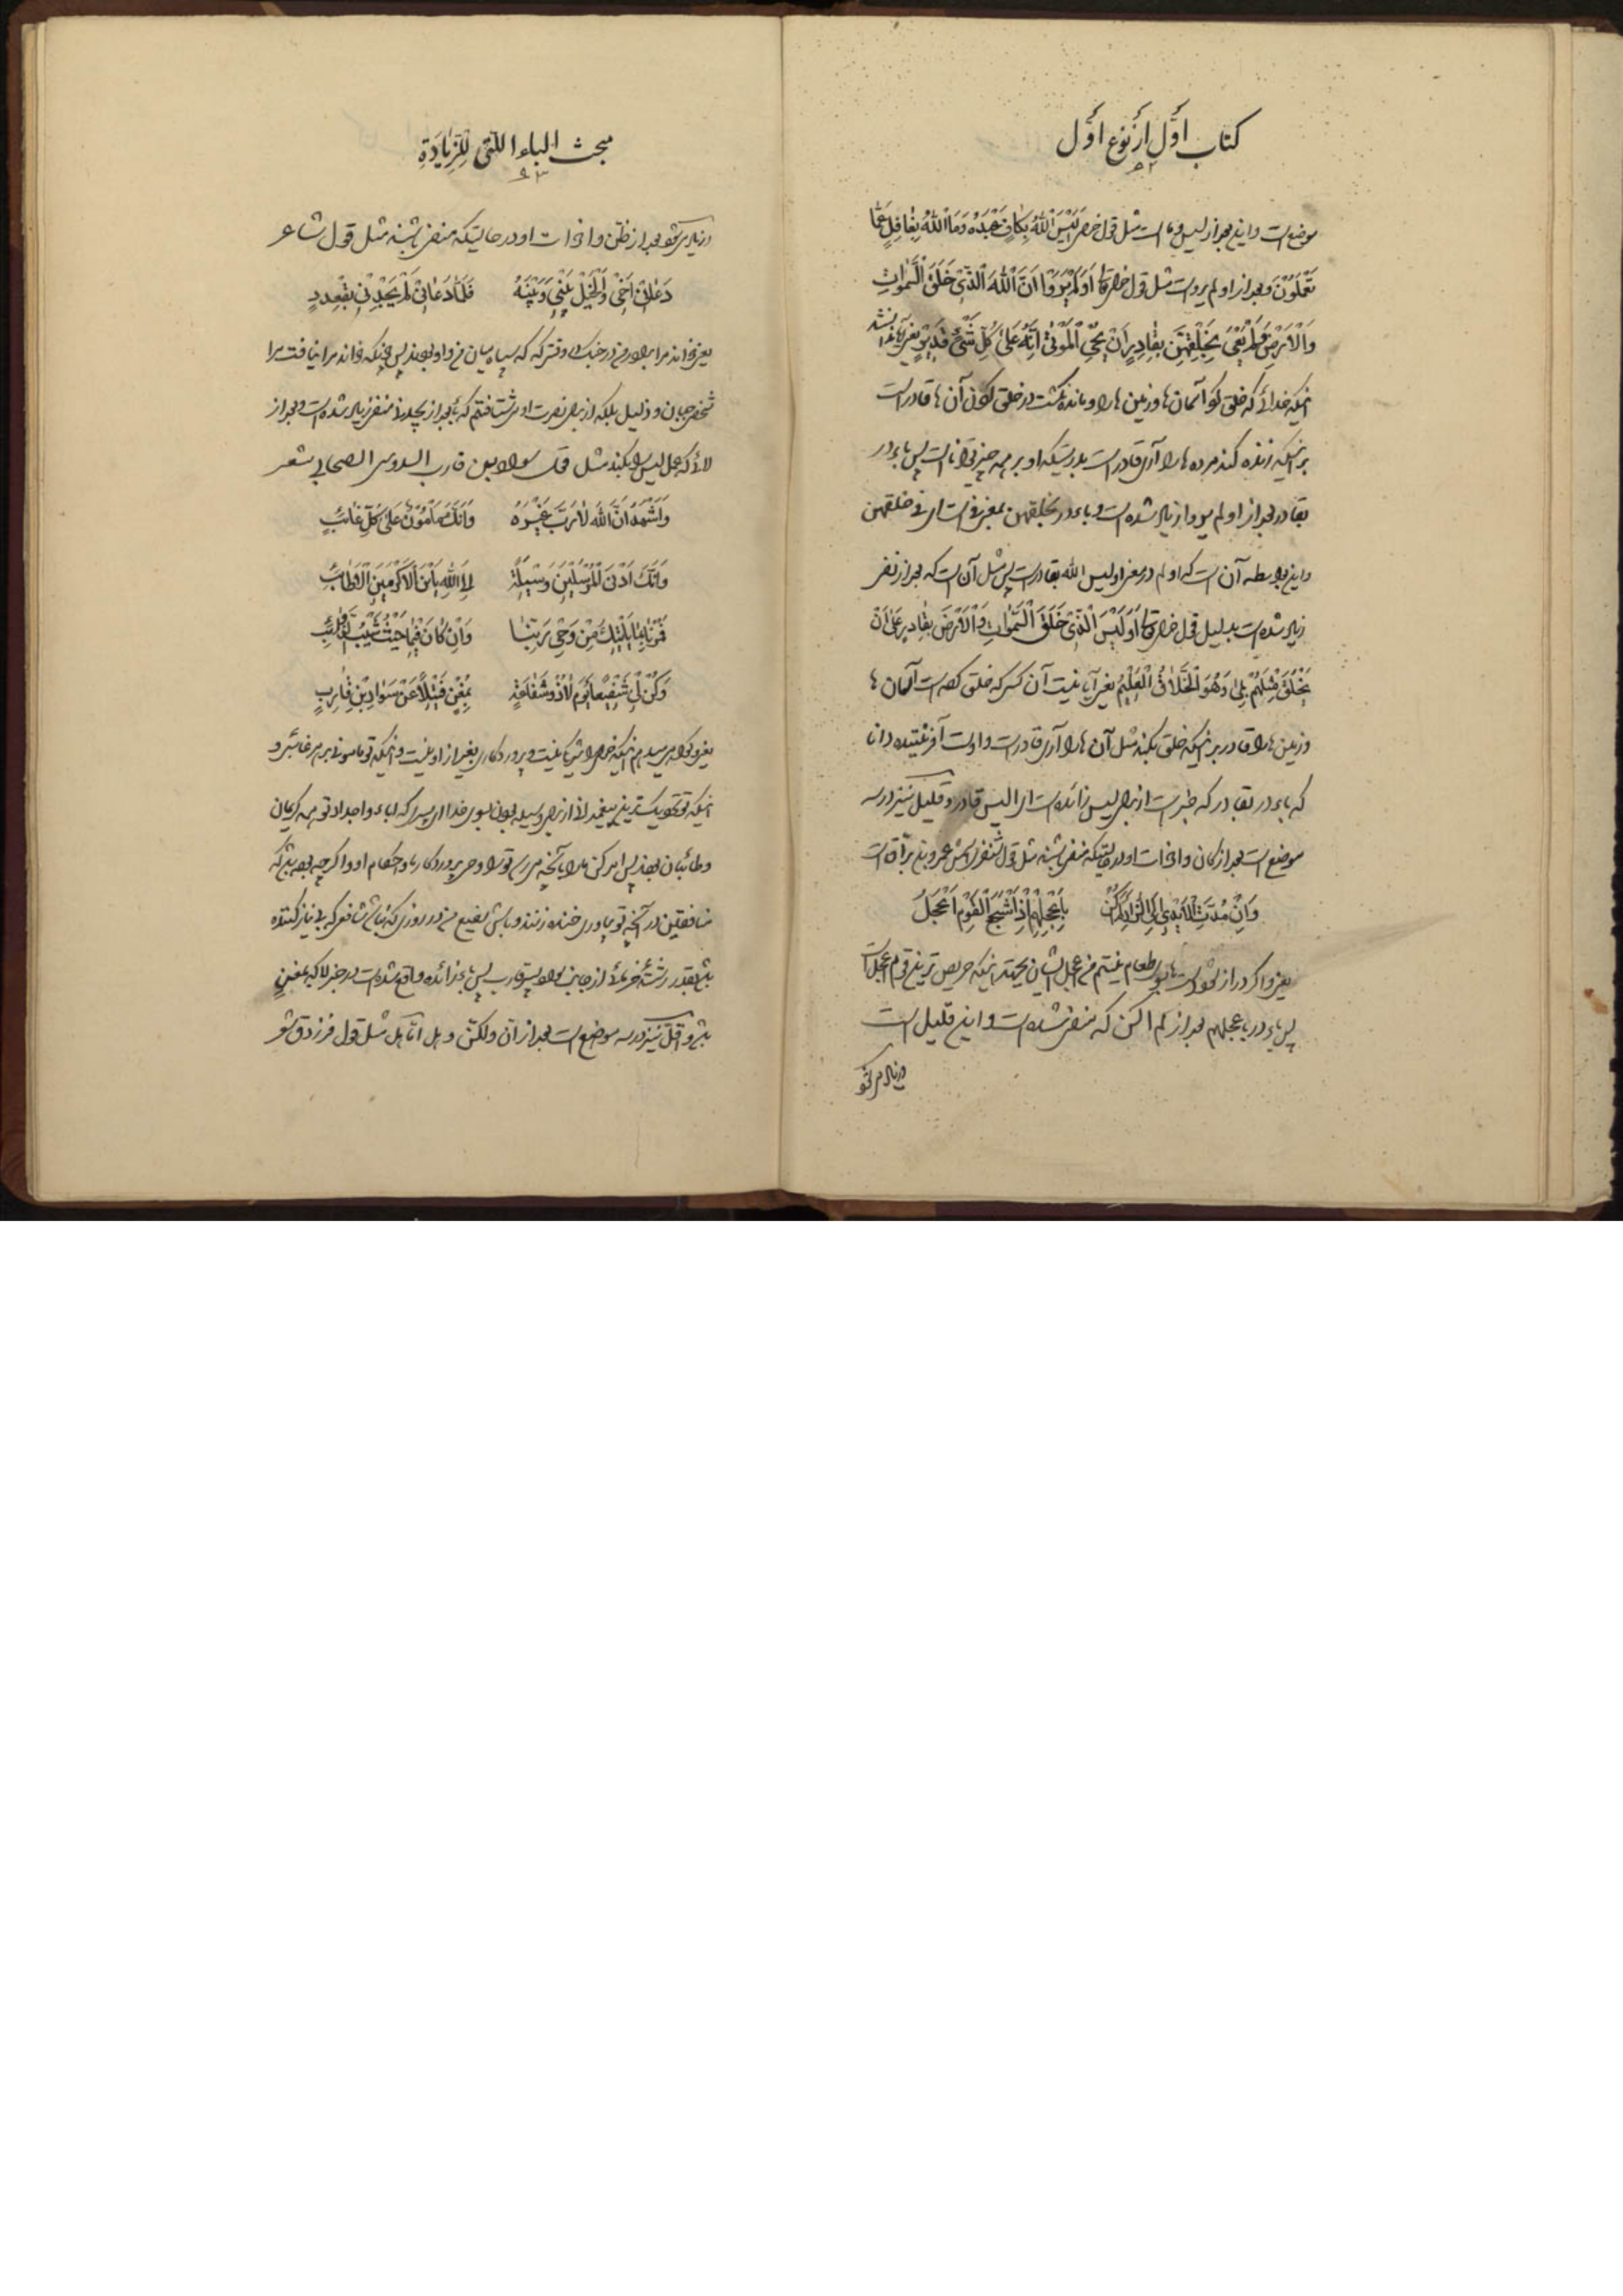 کتاب اوّل از نوع اوّل
۵۲
موضع است و این بعد از لیس و ما است مثل قول خدا اَلَیْسَ اللّٰهُ بِکٰافٍ عَبْدَهُ وَمَا اللّٰهُ بِغٰافِلٍ عَمّٰا
تَعْمَلُوْنَ و بعد از اولم یروا است مثل قول خدا اَوَلَمْ یَرَوْا اَنَّ اللّٰهَ الَّذِیْ خَلَقَ السَّمٰوٰاتِ
وَالْاَرْضَ وَلَمْ یَعْیَ بِخَلْقِهِنَّ بِقٰادِرٍ اَنْ یُحْیِ الْمَوْتٰی اِنَّهُ عَلٰی کُلِّ شَیْءٍ قَدِیْرٌ یعنی آیا ندانستند
اینکه خدائی که خلق کرد آسمان ها و زمین ها را و مانده نگشت در خلق کردن آن ها قادر است
بر اینکه زنده کند مرده ها را آری قادر است بدرستیکه او بر همه چیز توانا است پس باء در
بقادر بعد از اولم یروا زیاد شده است و باء در بخلقهن بمعنی فی است ای فی خلقهن
و این بواسطه آن است که اولم در معنی اولیس الله بقادر است پس مثل آن است که بعد از نفی
زیاد شده است بدلیل قول خدا اَوَلَیْسَ الَّذِیْ خَلَقَ السَّمٰوٰاتِ وَالْاَرْضَ بِقٰادِرٍ عَلٰی اَنْ
یَخْلُقَ مِثْلَهُمْ بَلٰی وَهُوَ الْخَلّٰاقُ الْعَلِیْمُ یعنی آیا نیست آن کسی که خلق کرده است آسمان ها
و زمین ها را قادر بر اینکه خلق بکند مثل آن ها را آری قادر است و اوست آفریننده دانا
که باء در بقادر که خبر است از برای لیس زائده است ای الیس قادرا و قلیل نیز در سه
موضع است بعد از کان و اخوات او در حالتیکه منفی باشند مثل قول شنفری بن عمرو بن براق است
وَاِنْ مُدَّتِ الْاَیْدِیْ اِلَی الزّٰادِ لَمْ اَکُنْ    بِاَعْجَلِهِمْ اِذْ اَشْجَعُ الْقَوْمِ اَعْجَلُ
یعنی و اگر دراز کرده شود دست ها بسوی طعام نیستم من اعجل ایشان بجهت اینکه حریص ترین قوم اعجل است
پس باء در باعجلهم بعد از لم اکن که منفی شده است و این قلیل است
و زیاد می شود
مبحث الباء الّتی لِلزِّیٰادَةِ
۵۳
و زیاد می شود بعد از ظنّ و اخوات او در حالتیکه منفی باشند مثل قول شاعر
دَعٰانِیْ اَخِیْ وَالْخَیْلُ بَیْنِیْ وَبَیْنَهُ    فَلَمّٰا دَعٰانِیْ لَمْ یَجِدْنِیْ بِقُعْدَدٍ
یعنی خواند مرا برادر من در جنگ در وقتی که که سپاه میان من و او بودند پس چونکه خواند مرا نیافت مرا
شخص جبان و ذلیل بلکه از برای نصرت او می شتافتم که باء بعد از یجد منفی زیاد شده است و بعد از
لائی که عمل لیس را بکند مثل قول سواد بن قارب السدوسی الصحابی شعر
وَاَشْهَدُ اَنَّ اللّٰهَ لٰا رَبَّ غَیْرُهُ    وَاَنَّكَ مَاْمُوْنٌ عَلٰی کُلِّ غٰائِبٍ
وَاَنَّكَ اَدْنَی الْمُرْسَلِیْنَ وَسِیْلَةً    اِلَی اللّٰهِ یَا بْنَ الْاَکْرَمِیْنَ الْاَطٰائِبِ
فَمُرْنٰا بِمٰا یَاْتِیْكَ مِنْ وَحْیِ رَبِّنٰا    وَاِنْ کٰانَ فِیْمٰا جِئْتَ شَیْبُ الذَّوٰائِبِ
وَکُنْ لِیْ شَفِیْعًا یَوْمَ لٰا ذُوْ شَفٰاعَةٍ    بِمُغْنٍ فَتِیْلًا عَنْ سَوٰادِ بْنِ قٰارِبٍ
یعنی و گواهی میدهم اینکه خدا را شریک نیست و پروردگاری بغیر از او نیست و اینکه تو مامونی بر هر غائبی و
اینکه تو نزدیک ترین پیغمبرانی از برای وسیله بودن بسوی خدا ای پسر که آباء و اجداد تو همه کریمان
و طائبان بودند پس امر کن ما را بآنچه می رسد تو را وحی پروردگار ما و احکام او و اگر چه بوده باشد که
منافقین در آنچه تو بیاوری خنده زنند و باش شفیع من در روزی که نباشد شافعی که بی نیاز کننده
باشد بقدر رشته خرمائی از جانب سواد پسر قارب پس باء زائده واقع شده است در خبر لا که بمغنٍ
باشد و اقلّ نیز در سه موضع است بعد از انّ و لکنّ و هل امّا هل مثل قول فرزدق شعر